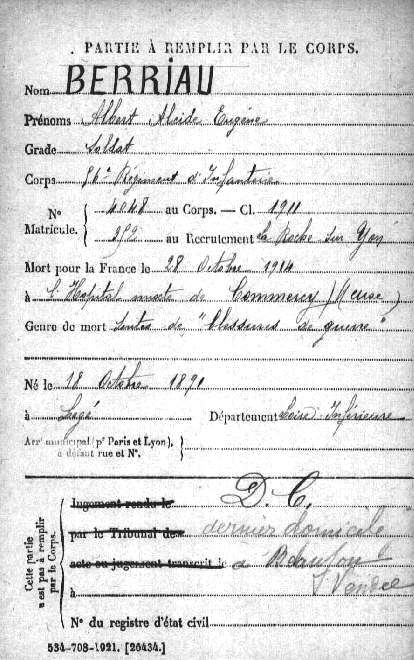 PARTIE À REMPLIR PAR LE CORPS.
Nom BERRIAU
Prénoms Albert Alcide Eugène
Grade Soldat
Corps Régiment d'Infanterie
N° Matricule. { 4048 au Corps. — Cl. 1911
au Recrutement La Roche sur Yon
Mort pour la France le 28 Octobre 1914
à l'Hopital mixte de Commercy (Meuse)
Genre de mort Suites de "Blessures de guerre"
Né le 18 Octobre 1891
à Legé Département Loire Inférieure
Arr¹ municipal (p² Paris et Lyon),
à défaut rue et N°.
Cette partie n'est pas à remplir par le Corps.
Jugement rendu le D. C.
par le Tribunal de dernier domicile
acte ou jugement transcrit le à
à Vendée
N° du registre d'état civil
534-708-1921. [26434.]